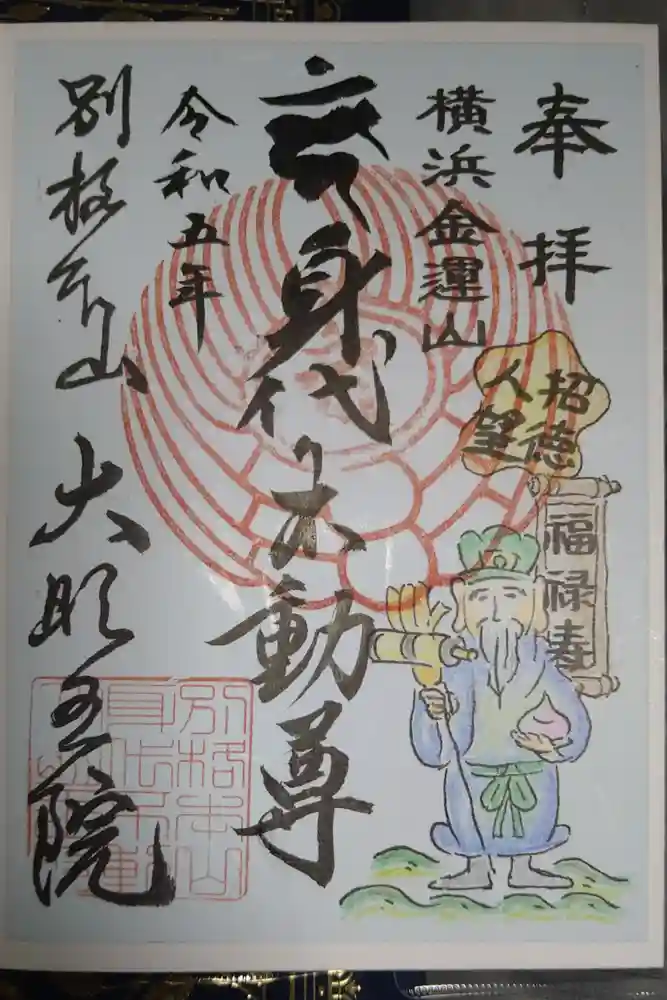 奉拝
横浜金運山
招徳
人望
福禄寿
身代り不動尊
令和五年
別格本山 大明王院
別格本山
身代不動